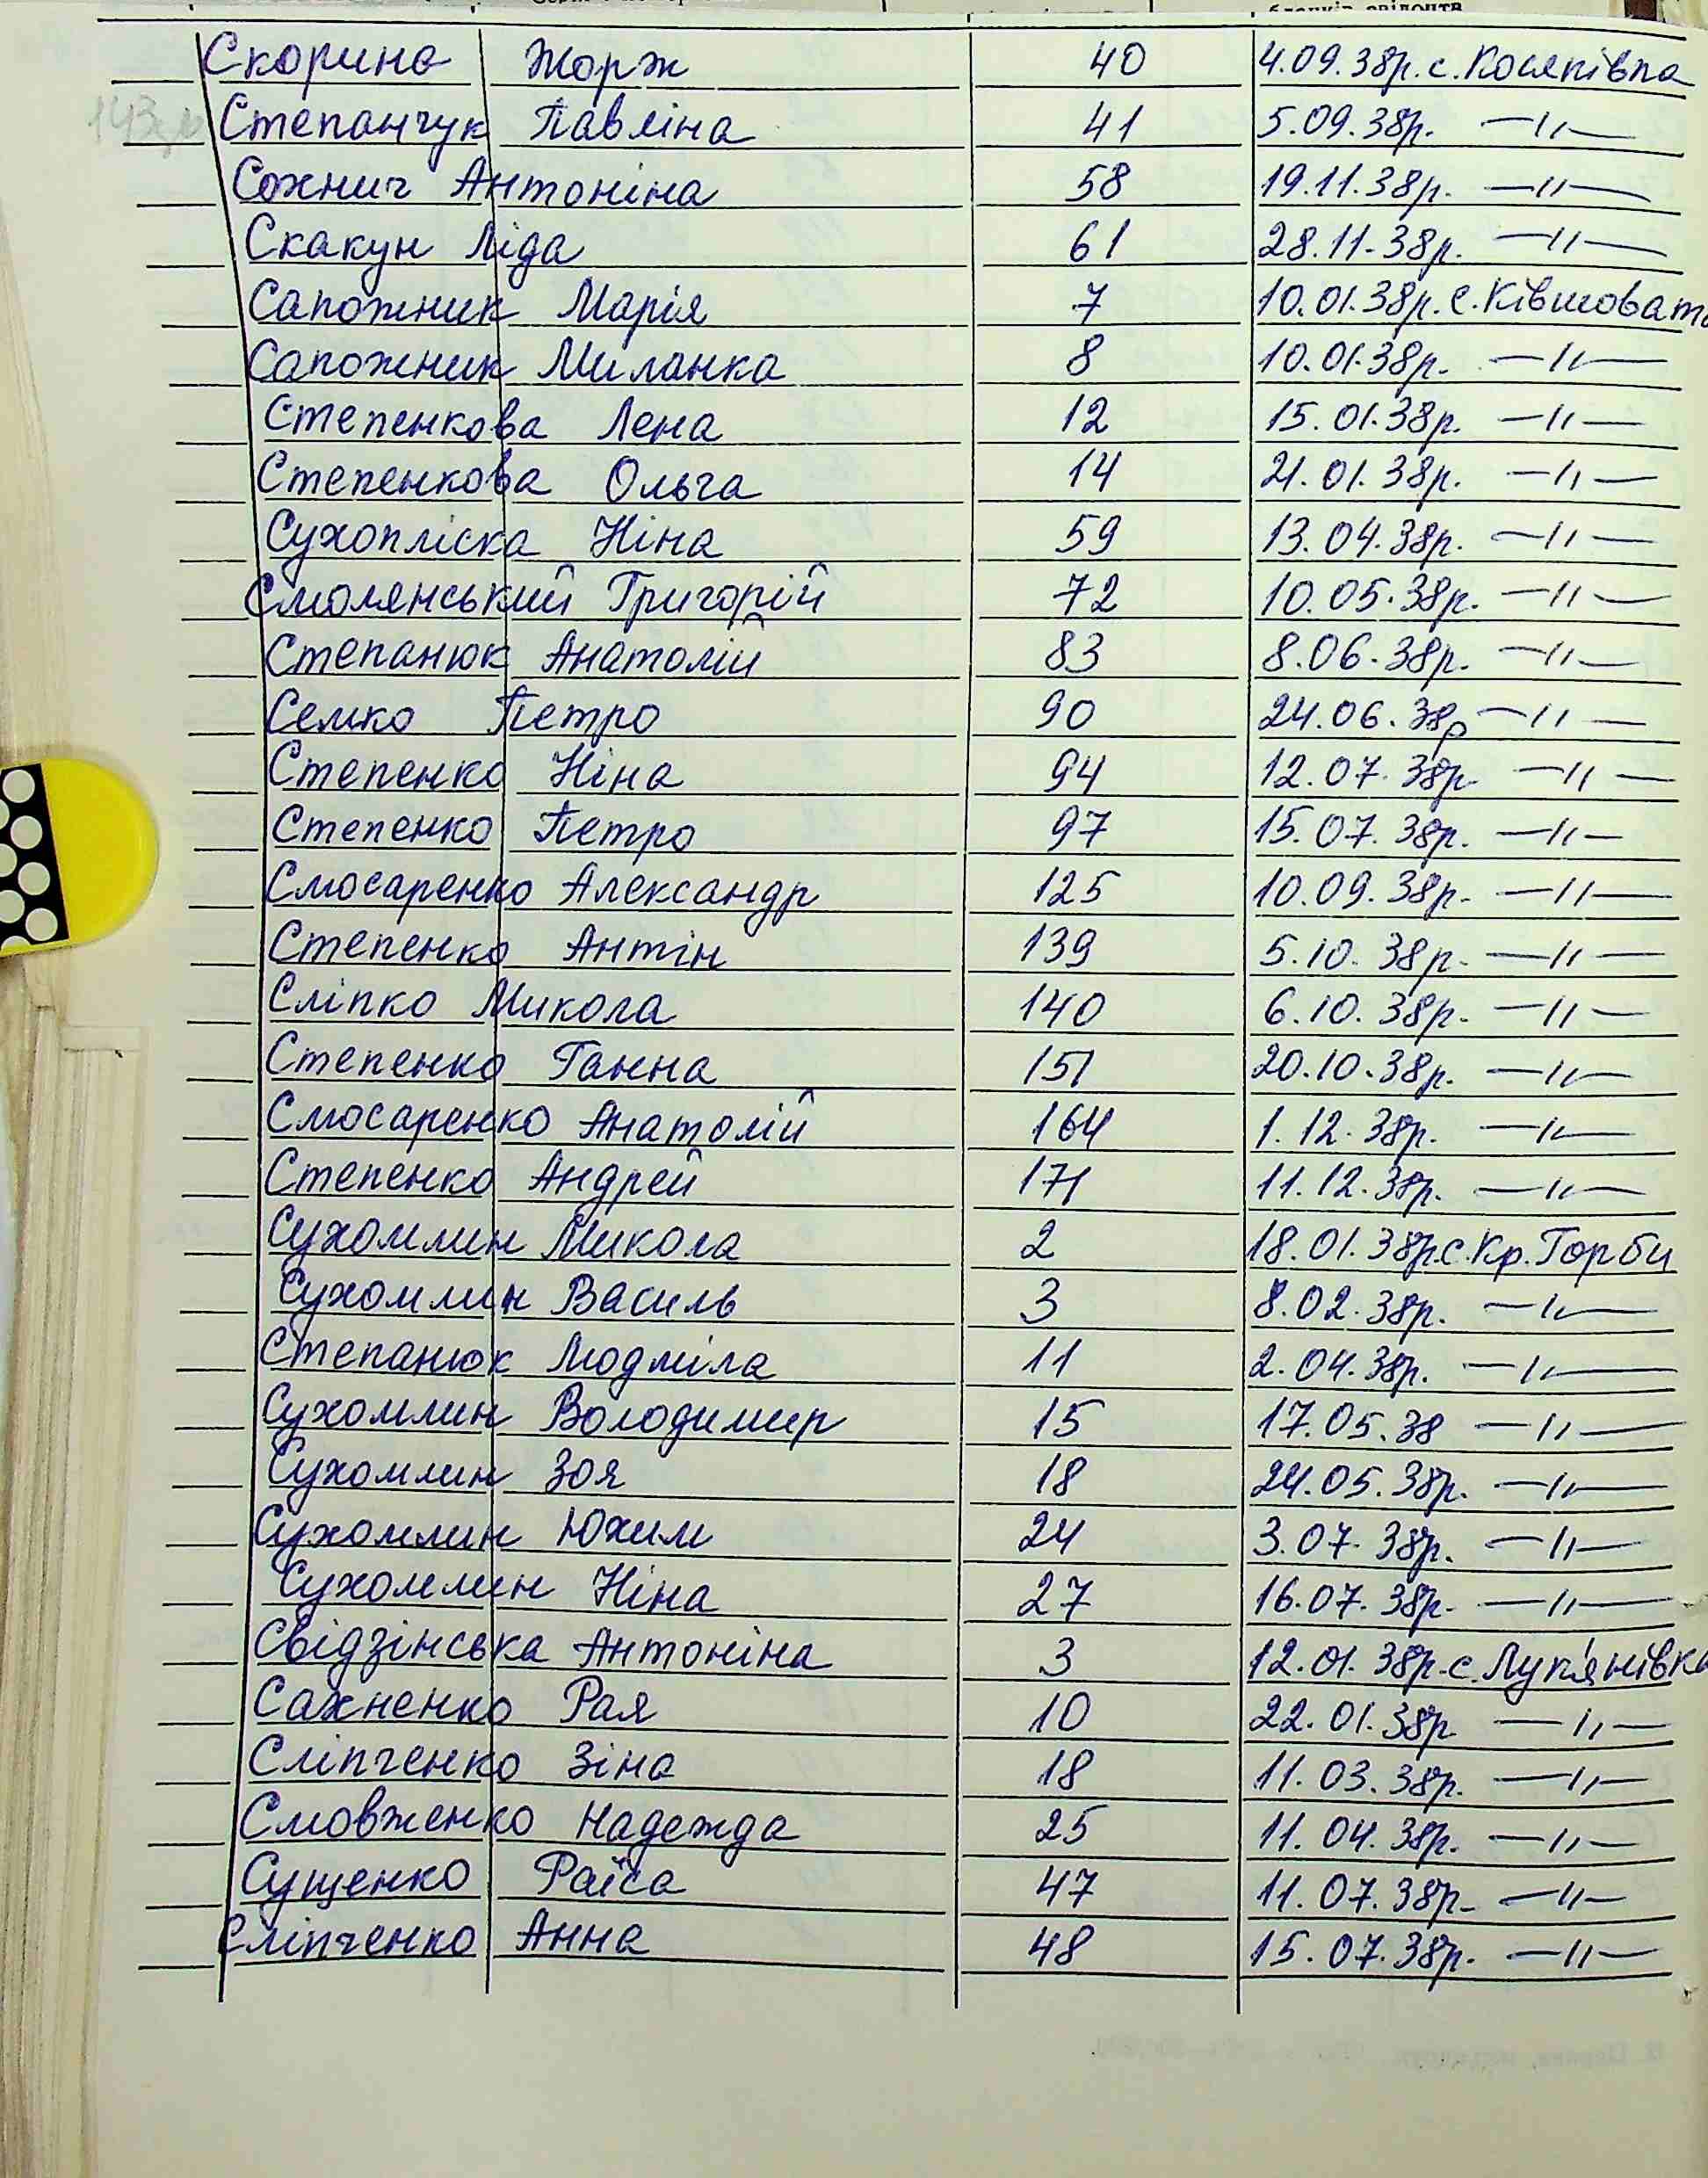 бланків свідоцтв
Скорина Жорж 40 4.09.38р. с. Косяківка
Степанчук Павліна 41 5.09.38р. —〃—
Сохнич Антоніна 58 19.11.38р. —〃—
Скакун Ліда 61 28.11.38р. —〃—
Сапожник Марія 7 10.01.38р. с. Ківшовата
Сапожник Миланка 8 10.01.38р. —〃—
Степенкова Лена 12 15.01.38р. —〃—
Степенкова Ольга 14 21.01.38р. —〃—
Сухопліска Ніна 59 13.04.38р. —〃—
Смолянський Григорій 72 10.05.38р. —〃—
Степанюк Анатолій 83 8.06.38р. —〃—
Семко Петро 90 24.06.38р —〃—
Степенко Ніна 94 12.07.38р. —〃—
Степенко Петро 97 15.07.38р. —〃—
Смосаренко Александр 125 10.09.38р. —〃—
Степенко Антін 139 5.10.38р. —〃—
Сліпко Микола 140 6.10.38р. —〃—
Степенко Ганна 151 20.10.38р. —〃—
Смосаренко Анатолій 164 1.12.38р. —〃—
Степенко Андрей 171 11.12.38р. —〃—
Сухомлин Микола 2 18.01.38р. с. Кр. Горби
Сухомлин Василь 3 8.02.38р. —〃—
Степанюк Людміла 11 2.04.38р. —〃—
Сухомлин Володимир 15 17.05.38 —〃—
Сухомлин Зоя 18 24.05.38р. —〃—
Сухомлин Юхим 24 3.07.38р. —〃—
Сухомлин Ніна 27 16.07.38р. —〃—
Свідзінська Антоніна 3 12.01.38р. с. Лук'янівка
Сахненко Рая 10 22.01.38р —〃—
Сліпченко Зіна 18 11.03.38р. —〃—
Смовженко Надежда 25 11.04.38р. —〃—
Сущенко Раїса 47 11.07.38р. —〃—
Сліпченко Анна 48 15.07.38р. —〃—